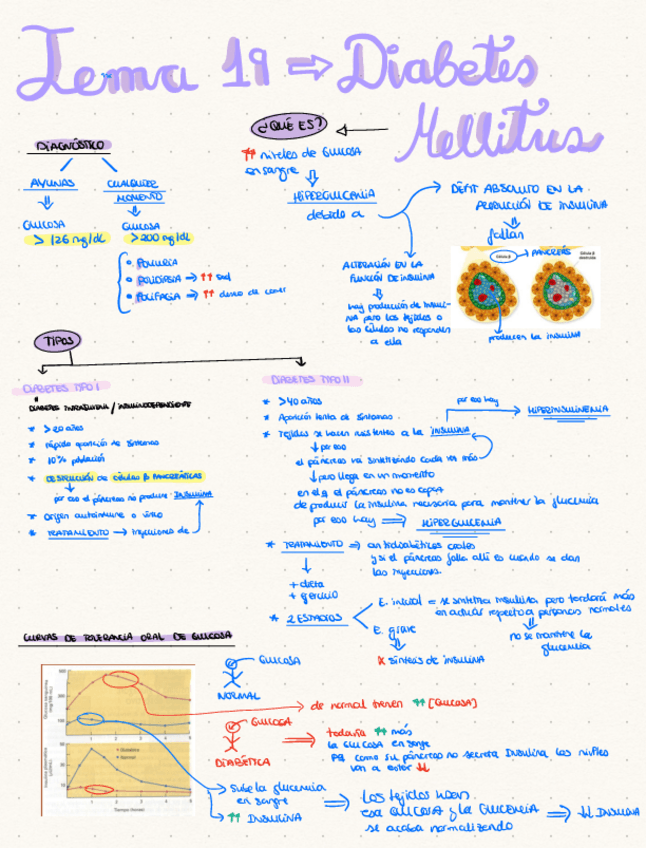 Tema 19 ⇒ Diabetes
Mellitus
¿QUÉ ES?
↑↑ niveles de GLUCOSA
en sangre
HIPERGLICAMIA
debido a
DÉFIT ABSOLUTO EN LA
PRODUCCIÓN DE INSULINA
fallan
célula β → PANCREÁS
producen la insulina
ALTERACIÓN EN LA
FUNCIÓN DE INSULINA
hay producción de insuli-
na pero los tejidos o
las células no responden
a ella
DIAGNÓSTICO
AYUNAS
GLUCOSA
> 126 mg/dL
CUALQUIER
MOMENTO
GLUCOSA
> 200 mg/dL
• POLIURIA
• POLIDIPSIA → ↑↑ sed
• POLIFAGIA → ↑↑ deseo de comer
TIPOS
DIABETES TIPO I
DIABETES INFANTOJUVENIL / INSULINODEPENDIENTE
* > 20 años
* rápida aparición de síntomas
* 10% población
* DESTRUCCIÓN de células β PANCREÁTICAS
por eso el páncreas no produce INSULINA
* origen autoinmune o vírico
* TRATAMIENTO → inyecciones de
DIABETES TIPO II
* >40 años
* Aparición lenta de síntomas
* Tejidos se hacen resistentes a la INSULINA
por eso hay
HIPERINSULINEMIA
↓ por eso
el páncreas va sintetizando cada vez más
↓ pero llega en un momento
en el q el páncreas no es capaz
de producir la insulina necesaria para mantener la glucemia
por eso hay ⇒ HIPERGLUCEMIA
* TRATAMIENTO ⇒ antidiabéticos orales
y si el páncreas falla allí es cuando se dan
las inyecciones.
+ dieta
+ ejercicio
* 2 ESTADIOS
E. inicial = se sintetiza insulina, pero tardará más
en actuar respecto a personas normales
no se mantiene la
glucemia
E. grave
x síntesis de insulina
CURVAS DE TOLERANCIA ORAL DE GLUCOSA
GLUCOSA
NORMAL
→ de normal tienen ↑↑ [Glucosa]
GLUCOSA
DIABÉTICA
⇒ todavía ↑↑ más
la GLUCOSA en sangre
PQ como su páncreas no secreta Insulina los niveles
van a estar ↓↓
Diabéticos
Normal
Tiempo (horas)
→ sube la glucemia
en sangre
→ ↑↑ INSULINA
⇒ Los tejidos usan
esa GLUCOSA y la GLUCEMIA
se acaba normalizando
⇒ ↓↓ INSULINA